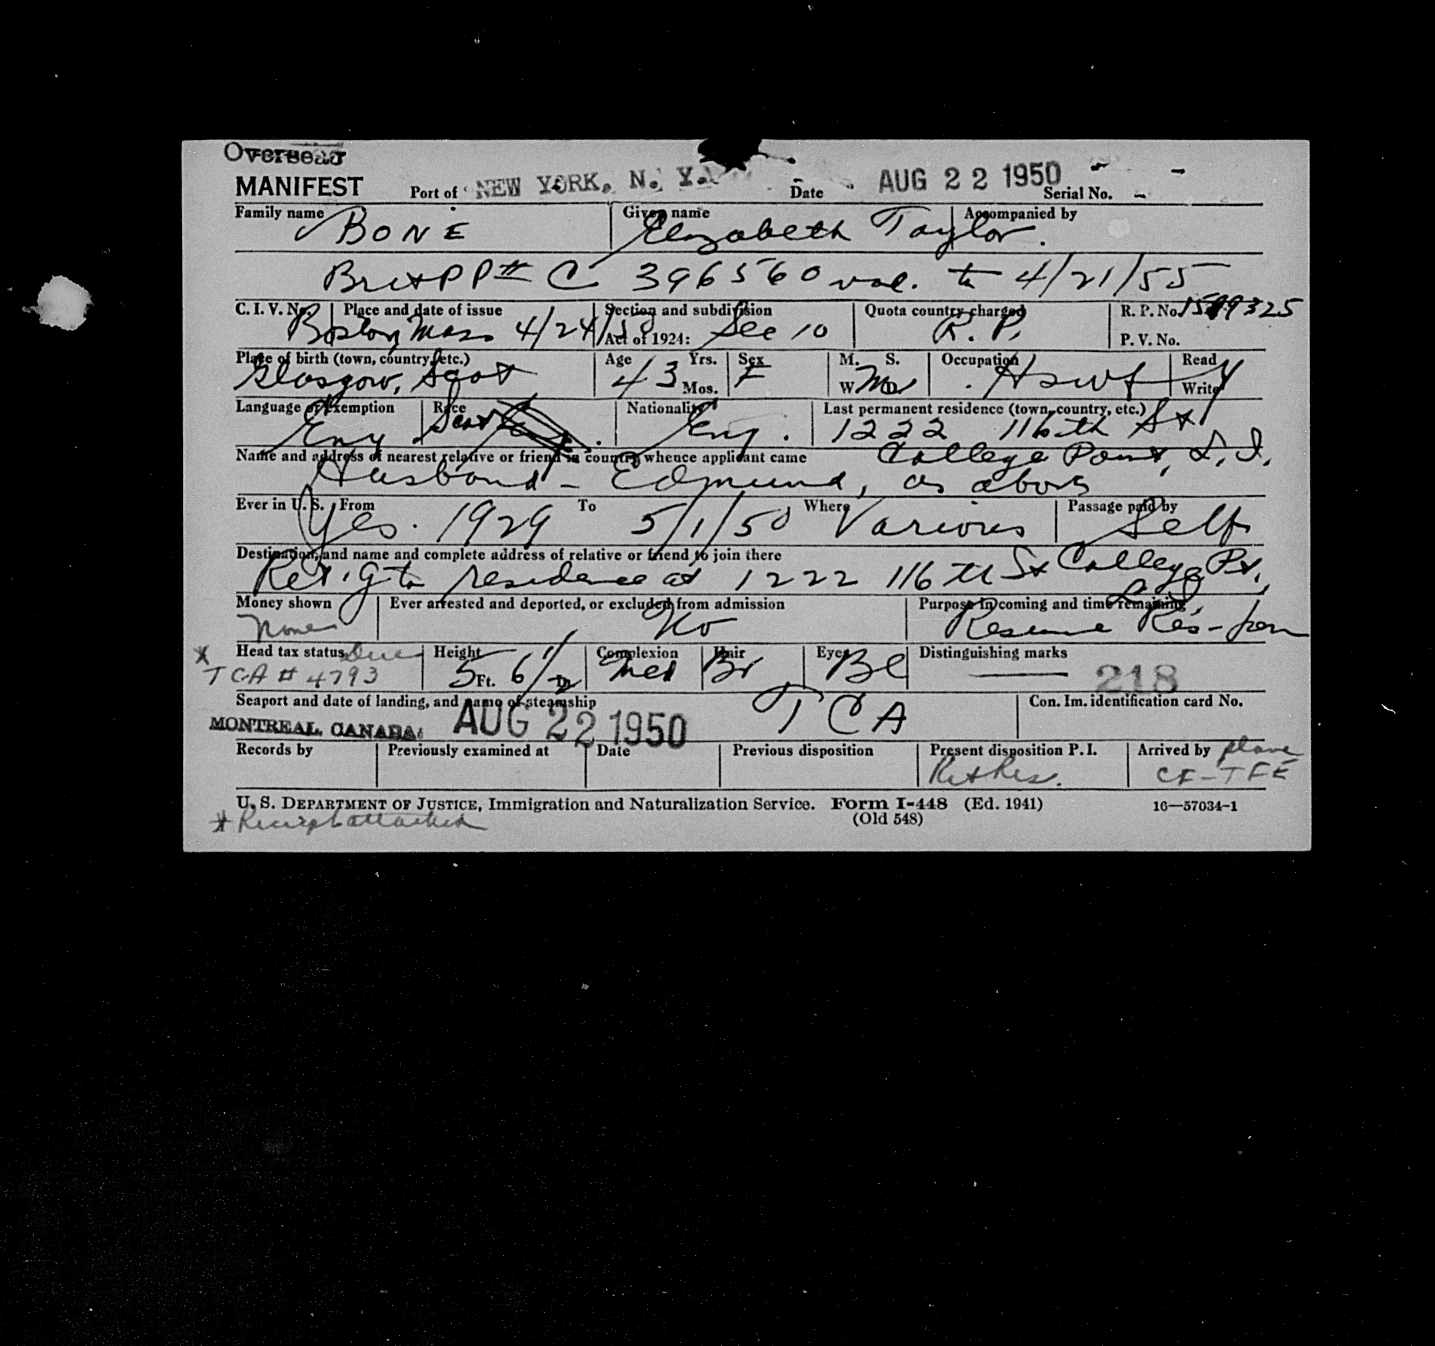 Overseas
MANIFEST Port of NEW YORK, N. Y. Date AUG 22 1950 Serial No.
Family name BONE Given name Elizabeth Taylor. Accompanied by
Brit PP # C 396560 val. to 4/21/55
C. I. V. No. Place and date of issue Section and subdivision Quota country charged R. P. No.
Boston, Mass 4/24/50 Act of 1924: Sec 10 R. P. P. V. No.
Place of birth (town, country, etc.) Age Yrs. Sex M. S. Occupation Read
Glasgow, Scot 43 Mos. F W M D Hswf Write Y
Language or exemption Race Nationality Last permanent residence (town, country, etc.)
Eng. Scot Eng. 1222 116th St
Name and address of nearest relative or friend in country whence applicant came College Point, L. I.
Husband - Edmund, as above
Ever in U. S. From To Where Passage paid by
Yes. 1929 5/1/50 Various Self
Destination, and name and complete address of relative or friend to join there
Ret'g to residence at 1222 116th St College Pt., L. I.
Money shown Ever arrested and deported, or excluded from admission Purpose in coming and time remaining
None No Resume Res - perm
Head tax status Due Height Complexion Hair Eyes Distinguishing marks
* TCA # 4793 5 Ft. 6 1/2 In. Med Br Bl 218
Seaport and date of landing, and name of steamship Con. Im. identification card No.
MONTREAL, CANADA. AUG 22 1950 TCA
Records by Previously examined at Date Previous disposition Present disposition P. I. Arrived by plane
Ret Res. CF-TFE
U. S. DEPARTMENT OF JUSTICE, Immigration and Naturalization Service. Form I-448 (Ed. 1941) 16—57034-1
(Old 548)
* Receipt attached